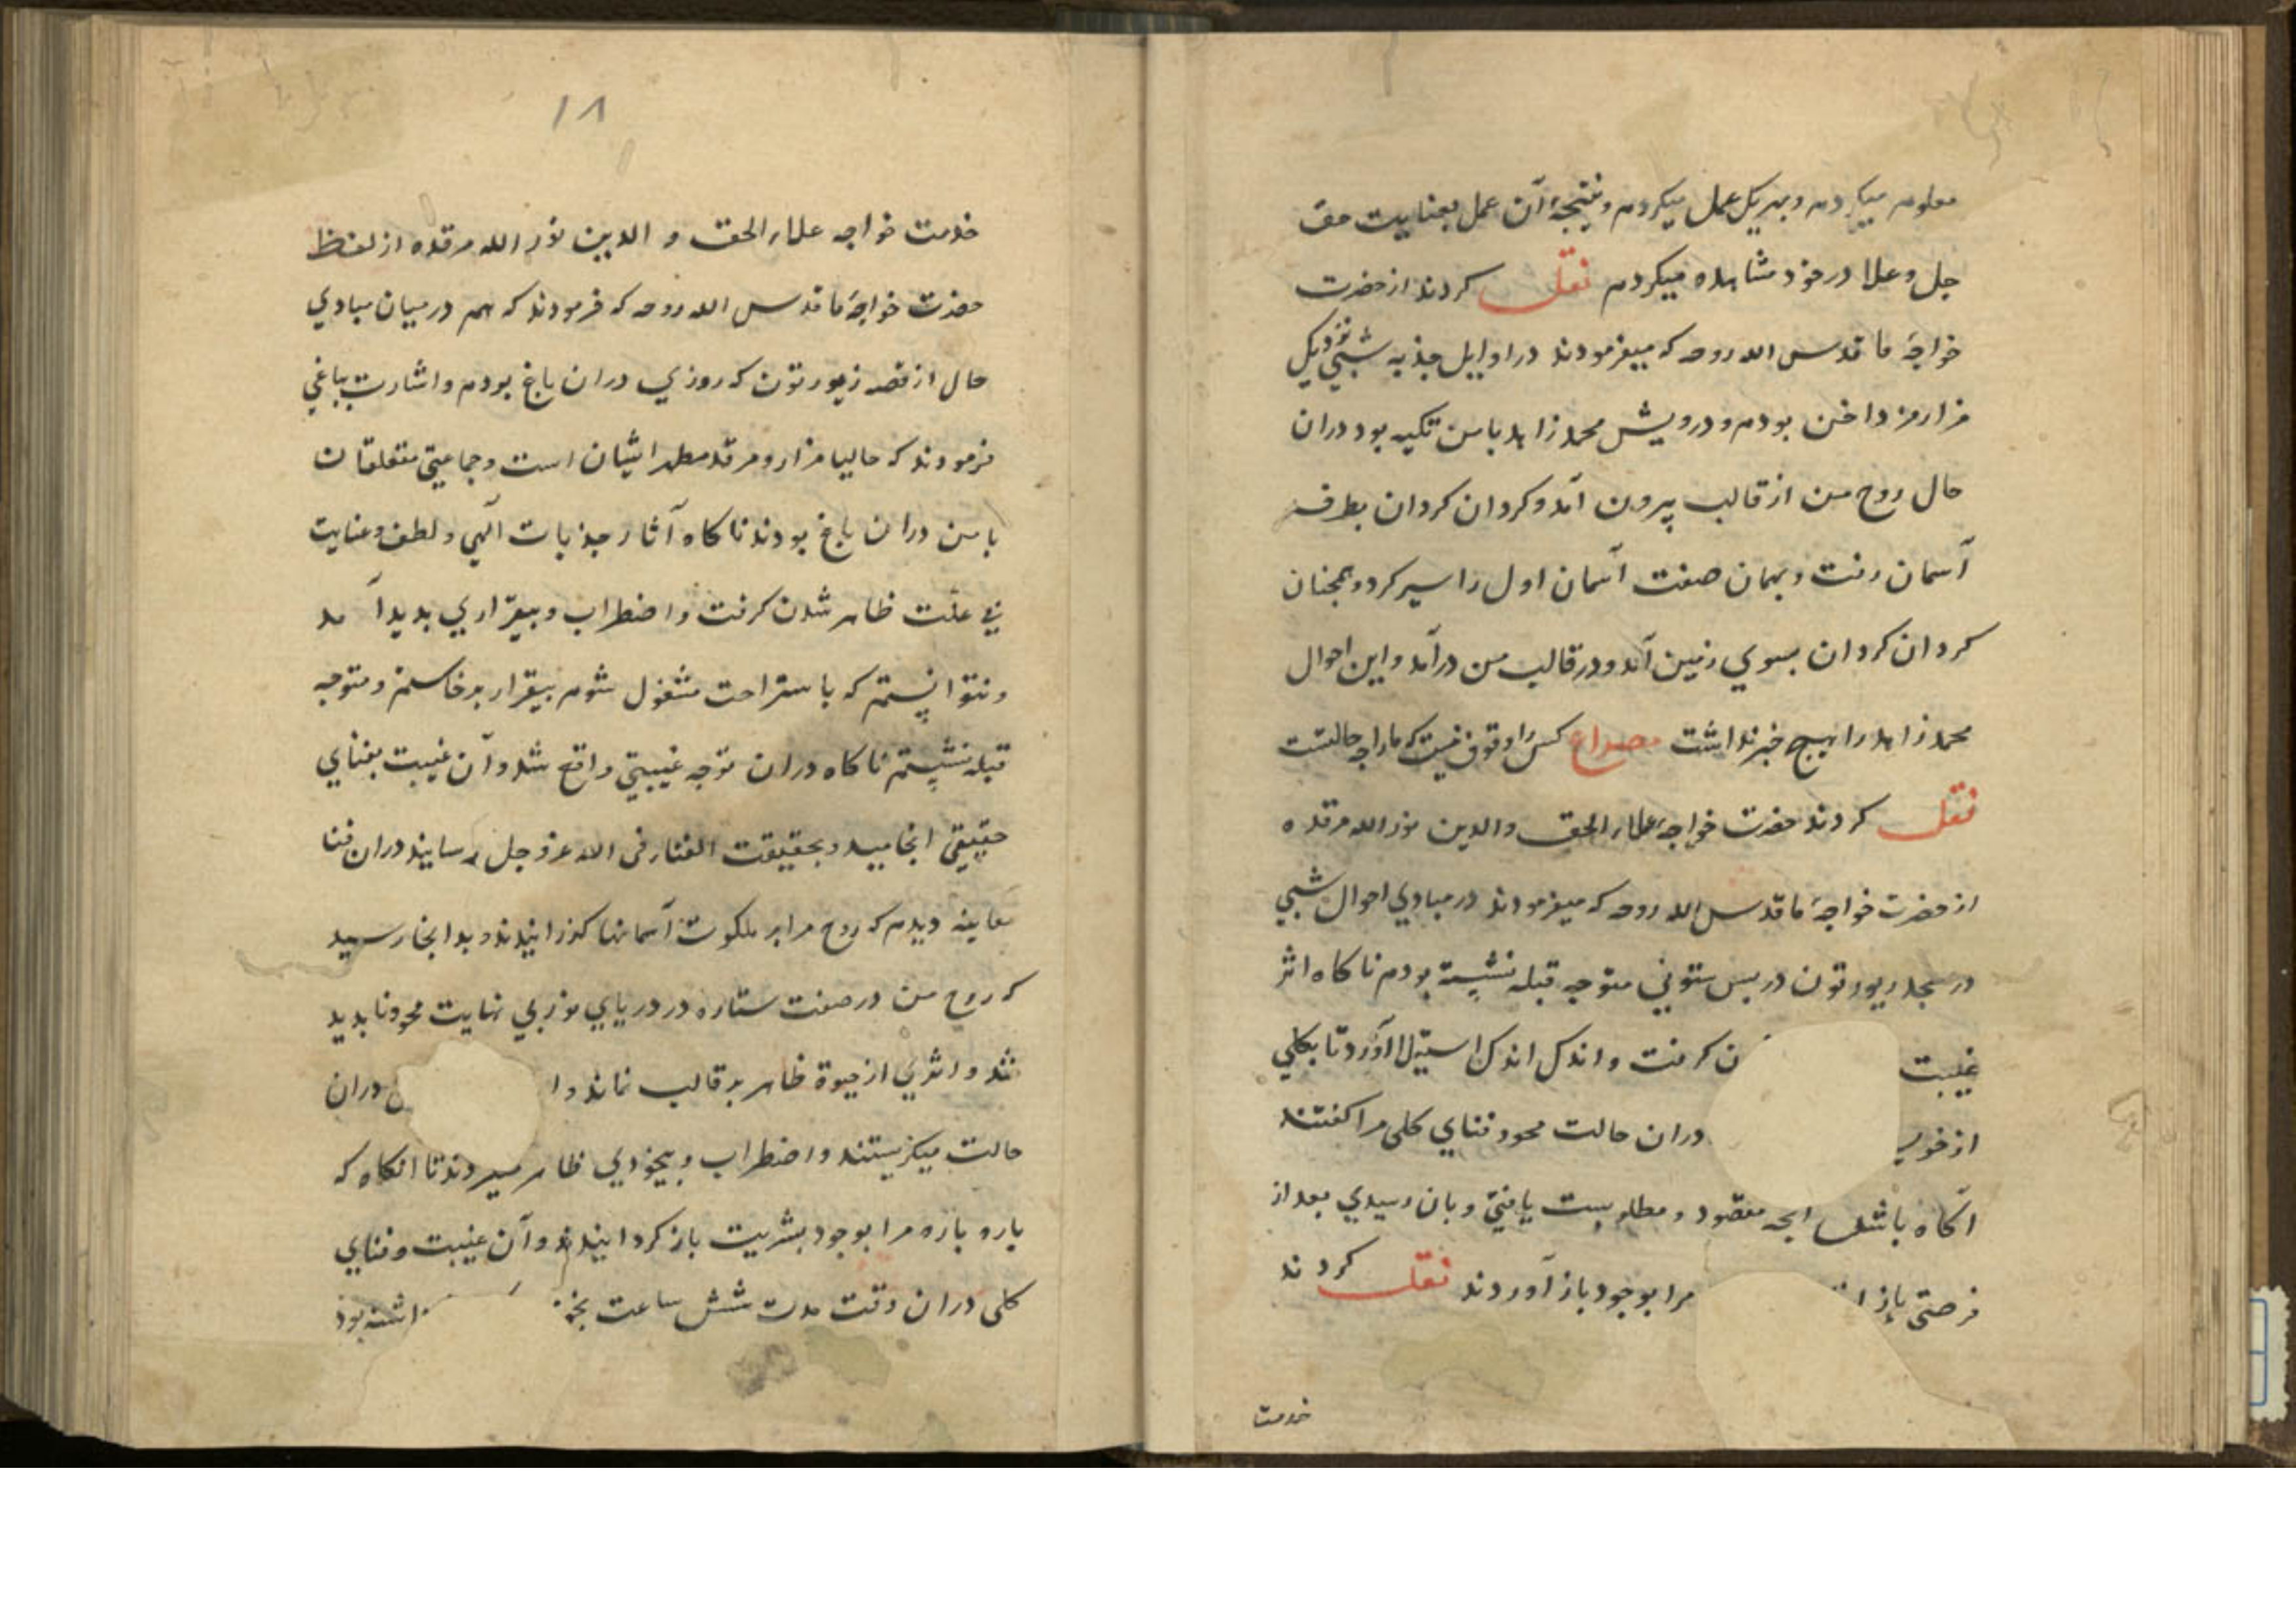 معلوم میکردم و بهر یک عمل میکردم و نتیجهٔ آن عمل بعنایت حق
جل و علا در خود مشاهده میکردم نقل کردند از حضرت
خواجهٔ ما قدس الله روحه که میفرمودند در اوایل جذبه شبی نزدیک
مزار مزداخن بودم و درویش محمد زاهد با من تکیه بود دران
حال روح من از قالب بیرون آمد و کردان کردان بطرف
آسمان رفت و بهمان صفت آسمان اول را سیر کرد و همچنان
کردان کردان بسوی زمین آمد و در قالب من درآمد و این احوال
محمد زاهد را هیچ خبر نداشت مصراع کس را وقوف نیست که ما را چه حالتست
نقل کردند حضرت خواجهٔ علاء الحق والدین نور الله مرقده
از حضرت خواجهٔ ما قدس الله روحه که میفرمودند در مبادی احوال شبی
در مسجد ریورتون در پس ستونی متوجه قبله نشسته بودم ناکاه اثر
غیبت ن کرفت و اندک اندک استیلا آورد تا بکلی
از خود دران حالت محو و فنای کلی مرا کفتند
آکاه باش انچه مقصود و مطلوبست یافتی و بان رسیدی بعد از
فرصتی باز مرا بوجود باز آوردند نقل کردند
خدمت
١٨
خدمت خواجه علاء الحق و الدین نور الله مرقده از لفظ
حضرت خواجهٔ ما قدس الله روحه که فرمودند که هم در میان مبادی
حال از قصه زیورتون که روزی دران باغ بودم و اشارت بباغی
فرمودند که حالیا مزار و مرقد مطهر ایشان است و جماعتی متعلقان
با من دران باغ بودند ناکاه آثار جذبات الهی و لطف و عنایت
بی علت ظاهر شدن کرفت و اضطراب و بیقراری پدید آمد
و نتوانستم که باستراحت مشغول شوم بیقرار برخاستم و متوجه
قبله نشستم ناکاه دران توجه غیبتی واقع شد و آن غیبت بفنای
حقیقی انجامید و بحقیقت الفناء فی الله عز و جل رسانید دران فنا
معاینه دیدم که روح مرا بر ملکوت آسمانها کذرانیدند و بدانجا رسید
که روح من در صفت ستاره در دریای نور بی نهایت محو و ناپدید
شد و اثری از حیوة ظاهر بر قالب نماند و ا دران
حالت میکریستند و اضطراب و بیخودی ظاهر میکردند تا انکاه که
باره باره مرا بوجود بشریت باز کردانیدند و آن غیبت و فنای
کلی دران وقت مدت شش ساعت اشته بود